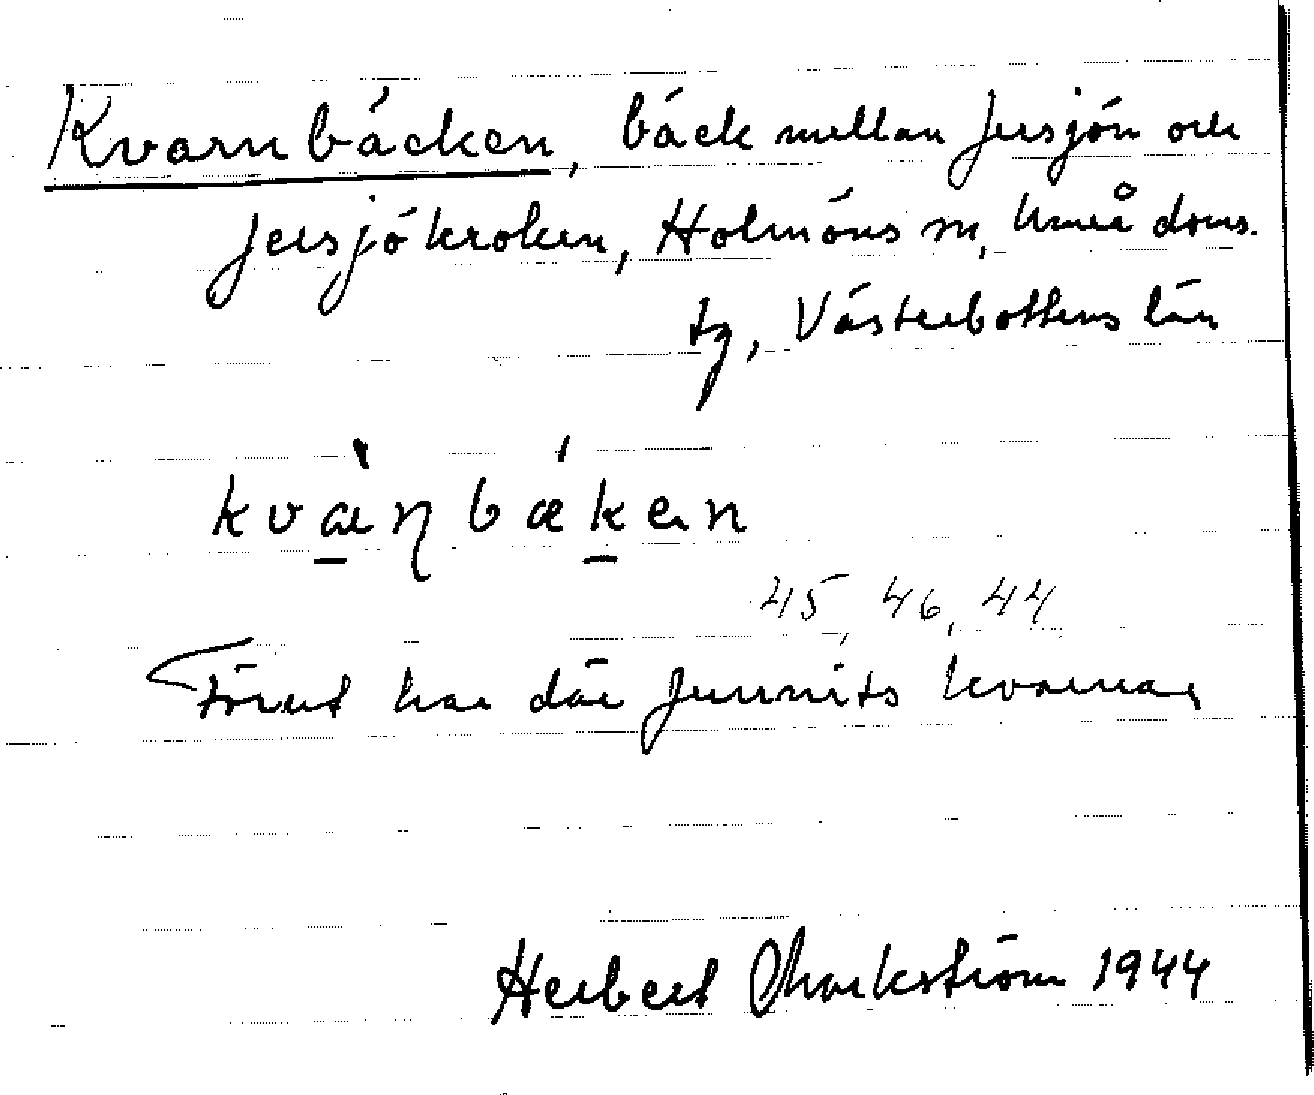 Kvarnbäcken, bäck mellan Jersjön och
Jersjökroken, Holmöns sn, Umeå doms.
tg, Västerbottens län
kvæɳbæken
45, 46, 44
Förut har där funnits kvarnar
Herbert Markström 1944